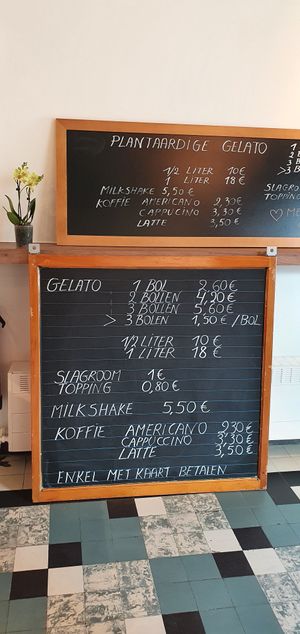 PLANTAARDIGE GELATO 1
2 B
3 B
>3 B
1/2 LITER 10€
1 LITER 18€
MILKSHAKE 5,50€
KOFFIE AMERICANO 2,30€
CAPPUCINO 3,30€
LATTE 3,50€
SLAGRO
TOPPING
♡ M
GELATO 1 BOL 2,60€
2 BOLLEN 4,20€
3 BOLLEN 5,60€
> 3 BOLEN 1,50€/BOL
1/2 LITER 10€
1 LITER 18€
SLAGROOM 1€
TOPPING 0,80€
MILKSHAKE 5,50€
KOFFIE AMERICANO 2,30€
CAPPUCCINO 3,30€
LATTE 3,50€
ENKEL MET KAART BETALEN